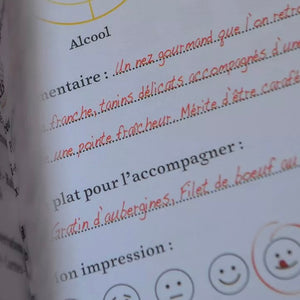 Alcool
mentaire : Un nez gourmand que l'on retr
franche, tanins délicats accompagnés d'un
une pointe fraîcheur. Mérite d'être caraf
plat pour l'accompagner :
Gratin d'aubergines, Filet de boeuf au
on impression :